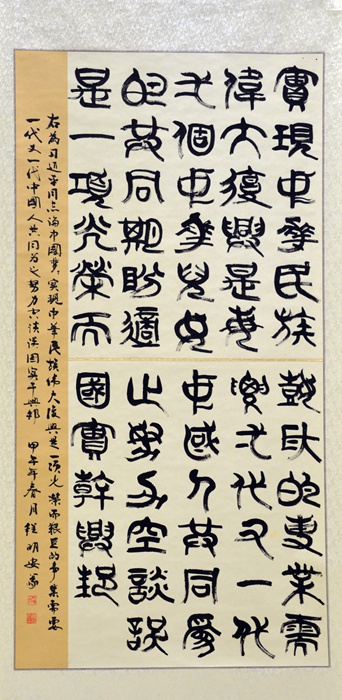 實現中華民族
偉大復興是每
弌個中華兒女
的共同期盼這
是一項光榮而
艱巨的事業需
要弌代又一代
中國人共同為
之努力空談誤
國實幹興邦
右為习近平同志論中國夢，實現中華民族偉大復興是一項光榮而艱巨的事業需要
一代又一代中國人共同為之努力空談誤國實干興邦 甲午年春月程明安篆